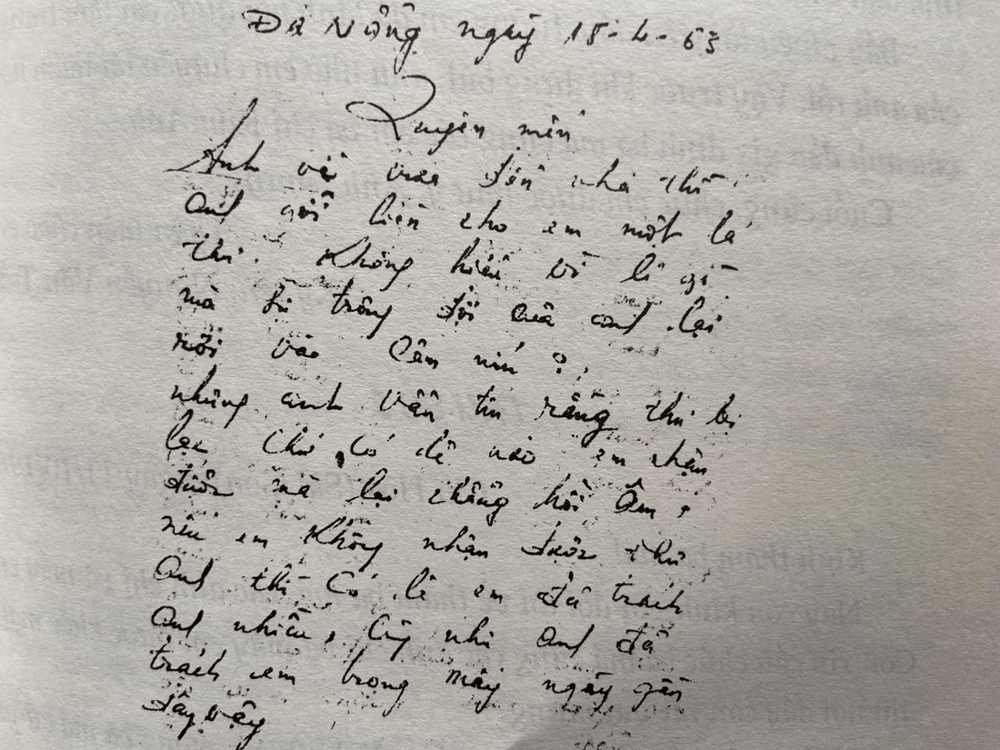 Đà Nẵng ngày 18-4-63
Quyên mến
Anh về vừa đến nhà thì
anh gởi liền cho em một lá
thư. Không hiểu vì lí gì
mà sự trông đợi của anh lại
rơi vào câm nín?
nhưng anh vẫn tin rằng thư bị
lạc chứ có dễ nào em nhận
được mà lại chẳng hồi âm,
nếu em không nhận được thư
anh thì có lẽ em đã trách
anh nhiều, cũng như anh đã
trách em trong mấy ngày gần
đây vậy